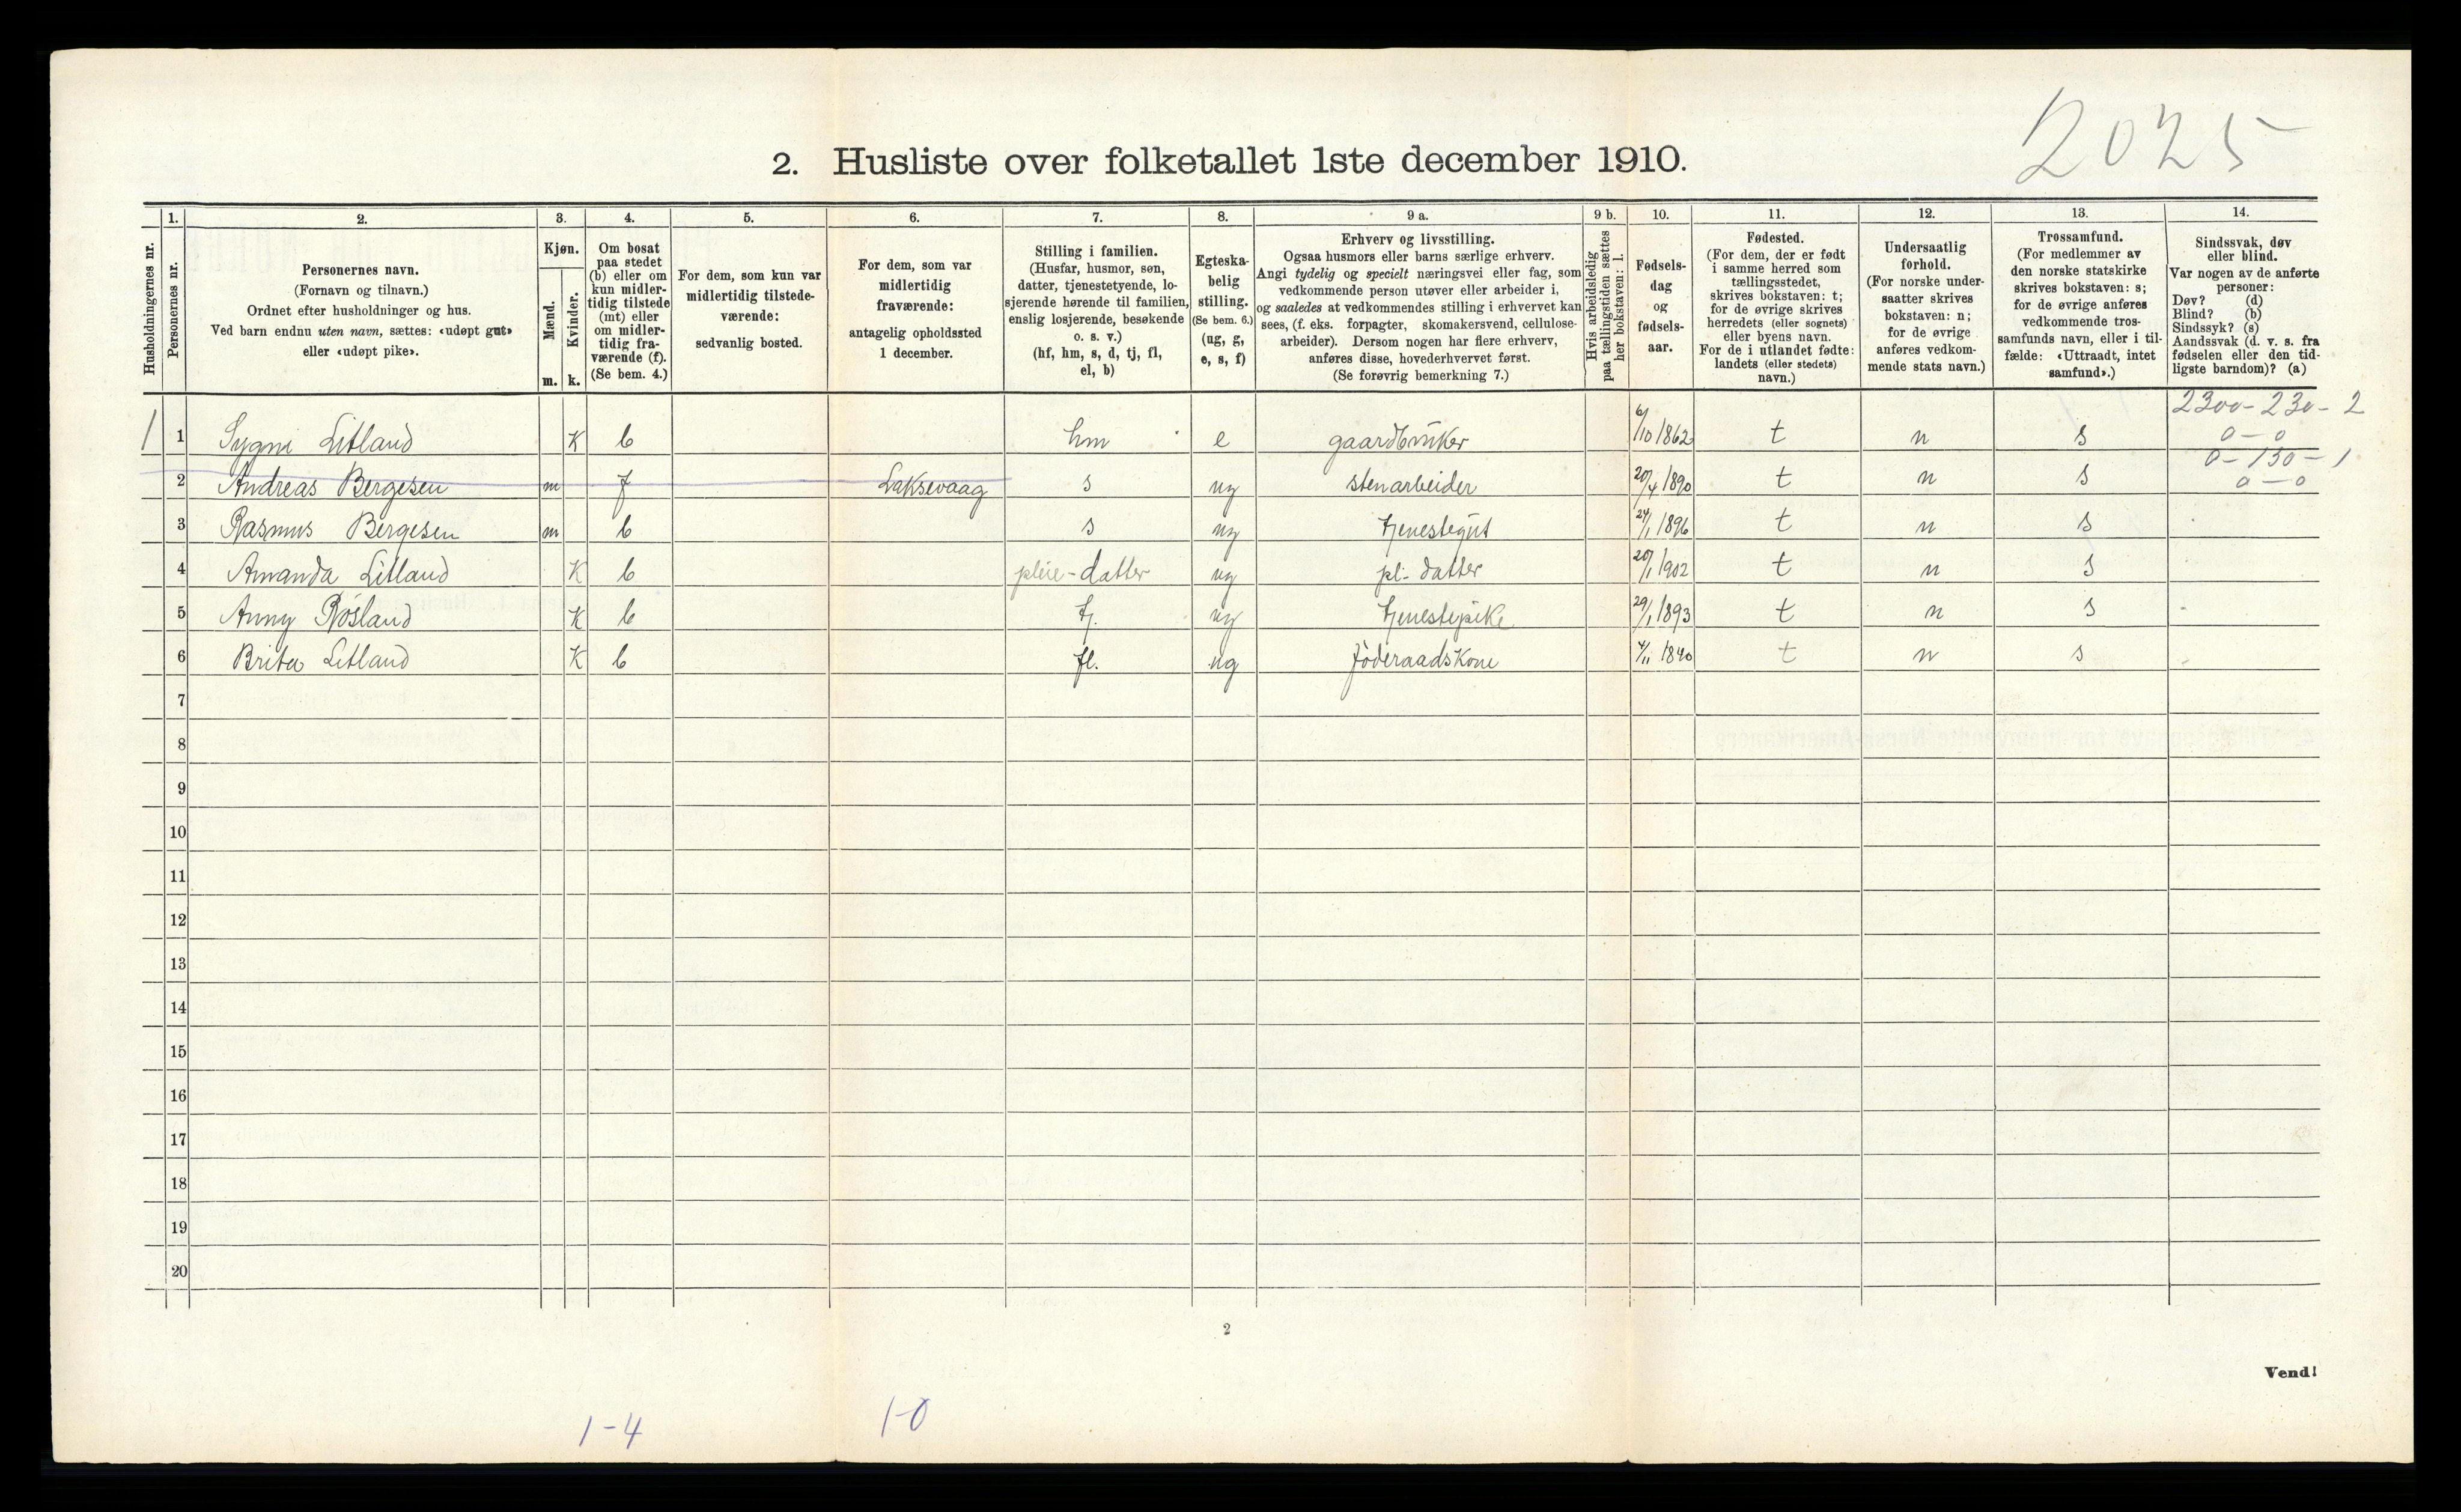 2025
2. Husliste over folketallet 1ste december 1910.
Husholdningernes nr.
1.
Personernes nr.
2.
Personernes navn.
(Fornavn og tilnavn.)
Ordnet efter husholdninger og hus.
Ved barn endnu uten navn, sættes: «udøpt gut»
eller «udøpt pike».
3.
Kjøn.
Mænd.
Kvinder.
m. k.
4.
Om bosat
paa stedet
(b) eller om
kun midler-
tidig tilstede
(mt) eller
om midler-
tidig fra-
værende (f).
(Se bem. 4.)
5.
For dem, som kun var
midlertidig tilstede-
værende:
sedvanlig bosted.
6.
For dem, som var
midlertidig
fraværende:
antagelig opholdssted
1 december.
7.
Stilling i familien.
(Husfar, husmor, søn,
datter, tjenestetyende, lo-
sjerende hørende til familien,
enslig losjerende, besøkende
o. s. v.)
(hf, hm, s, d, tj, fl,
el, b)
8.
Egteska-
belig
stilling.
(Se bem. 6.)
(ug, g,
e, s, f)
9 a.
Erhverv og livsstilling.
Ogsaa husmors eller barns særlige erhverv.
Angi tydelig og specielt næringsvei eller fag, som
vedkommende person utøver eller arbeider i,
og saaledes at vedkommendes stilling i erhvervet kan
sees, (f. eks. forpagter, skomakersvend, cellulose-
arbeider). Dersom nogen har flere erhverv,
anføres disse, hovederhvervet først.
(Se forøvrig bemerkning 7.)
9 b.
Hvis arbeidsledig
paa tællingstiden sættes
her bokstaven: l.
10.
Fødsels-
dag
og
fødsels-
aar.
11.
Fødested.
(For dem, der er født
i samme herred som
tællingsstedet,
skrives bokstaven: t;
for de øvrige skrives
herredets (eller sognets)
eller byens navn.
For de i utlandet fødte:
landets (eller stedets)
navn.)
12.
Undersaatlig
forhold.
(For norske under-
saatter skrives
bokstaven: n;
for de øvrige
anføres vedkom-
mende stats navn.)
13.
Trossamfund.
(For medlemmer av
den norske statskirke
skrives bokstaven: s;
for de øvrige anføres
vedkommende tros-
samfunds navn, eller i til-
fælde: «Uttraadt, intet
samfund».)
14.
Sindssvak, døv
eller blind.
Var nogen av de anførte
personer:
Døv? (d)
Blind? (b)
Sindssyk? (s)
Aandssvak (d. v. s. fra
fødselen eller den tid-
ligste barndom)? (a)
2300-230-2
1 1 Sygni Litland K b hm e gaardbruker 6/10 1862 t n s 0-0
0-130-1
2 Andreas Bergesen m f Laksevaag s ug stenarbeider 20/4 1890 t n s 0-0
3 Rasmus Bergesen m b s ug tjenestegut 24/1 1896 t n s
4 Amanda Litland K b pleie-datter ug pl- datter 20/1 1902 t n s
5 Anny Røsland K b tj. ug tjenestepike 29/1 1893 t n s -
6 Brita Litland K b fl. ug føderaadskone 4/11 1840 t n s -
7
8
9
10
11
12
13
14
15
16
17
18
19
20
2
Vend!
1-4 1-0